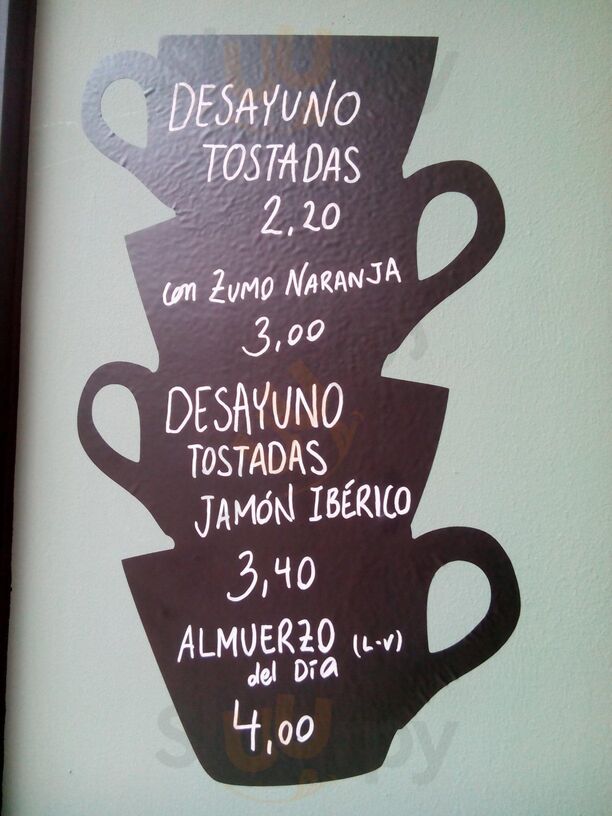 DESAYUNO
TOSTADAS
2,20
con ZUMO NARANJA
3,00
DESAYUNO
TOSTADAS
JAMÓN IBÉRICO
3,40
ALMUERZO (L-V)
del Día
4,00